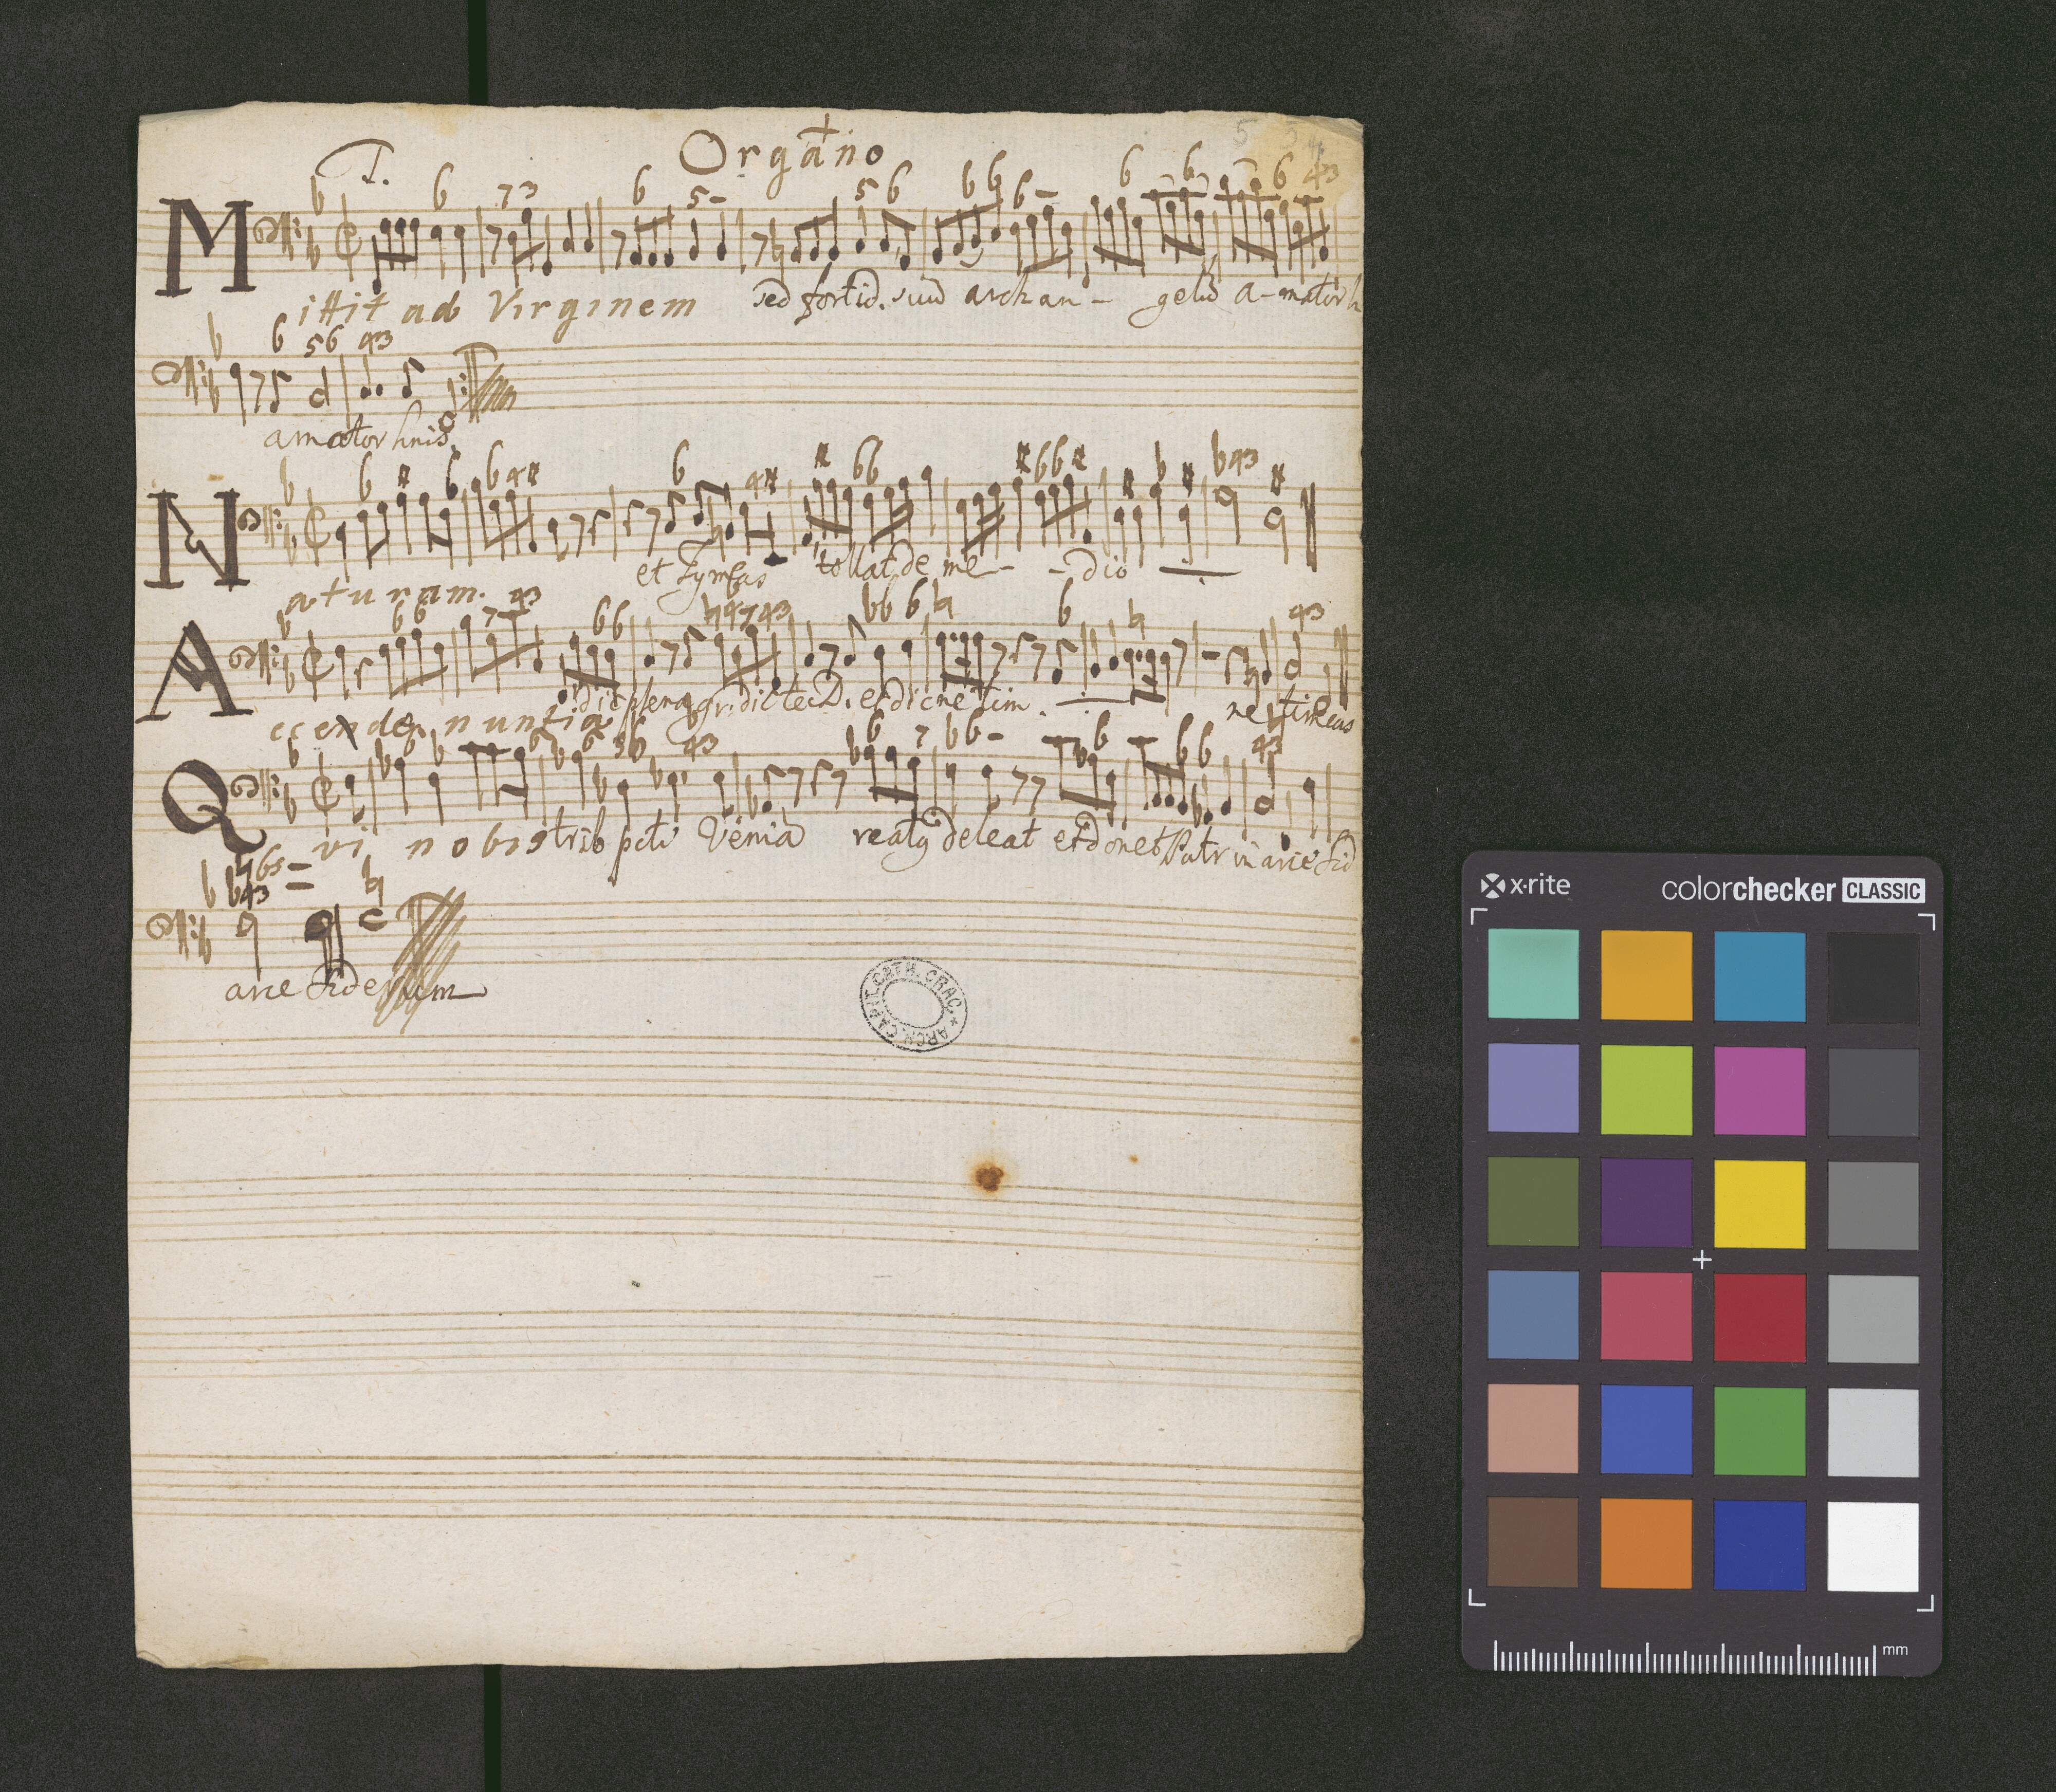 Organo
T.
Mittit ad Virginem sed fortid. suu archan- gelu a-mator h
amator hnis.
Naturam. et Zymas tollat de me- - dio
Accende nuntia dic plena gr: dic tec D. et dic ne tim. ne timeas
Qvi nobis trib peti Venia reatq deleat et donet Patr in arce Sid
arce Siderum
ARCH. CAPIT. CATH. CRAC.
x-rite
colorchecker CLASSIC
mm